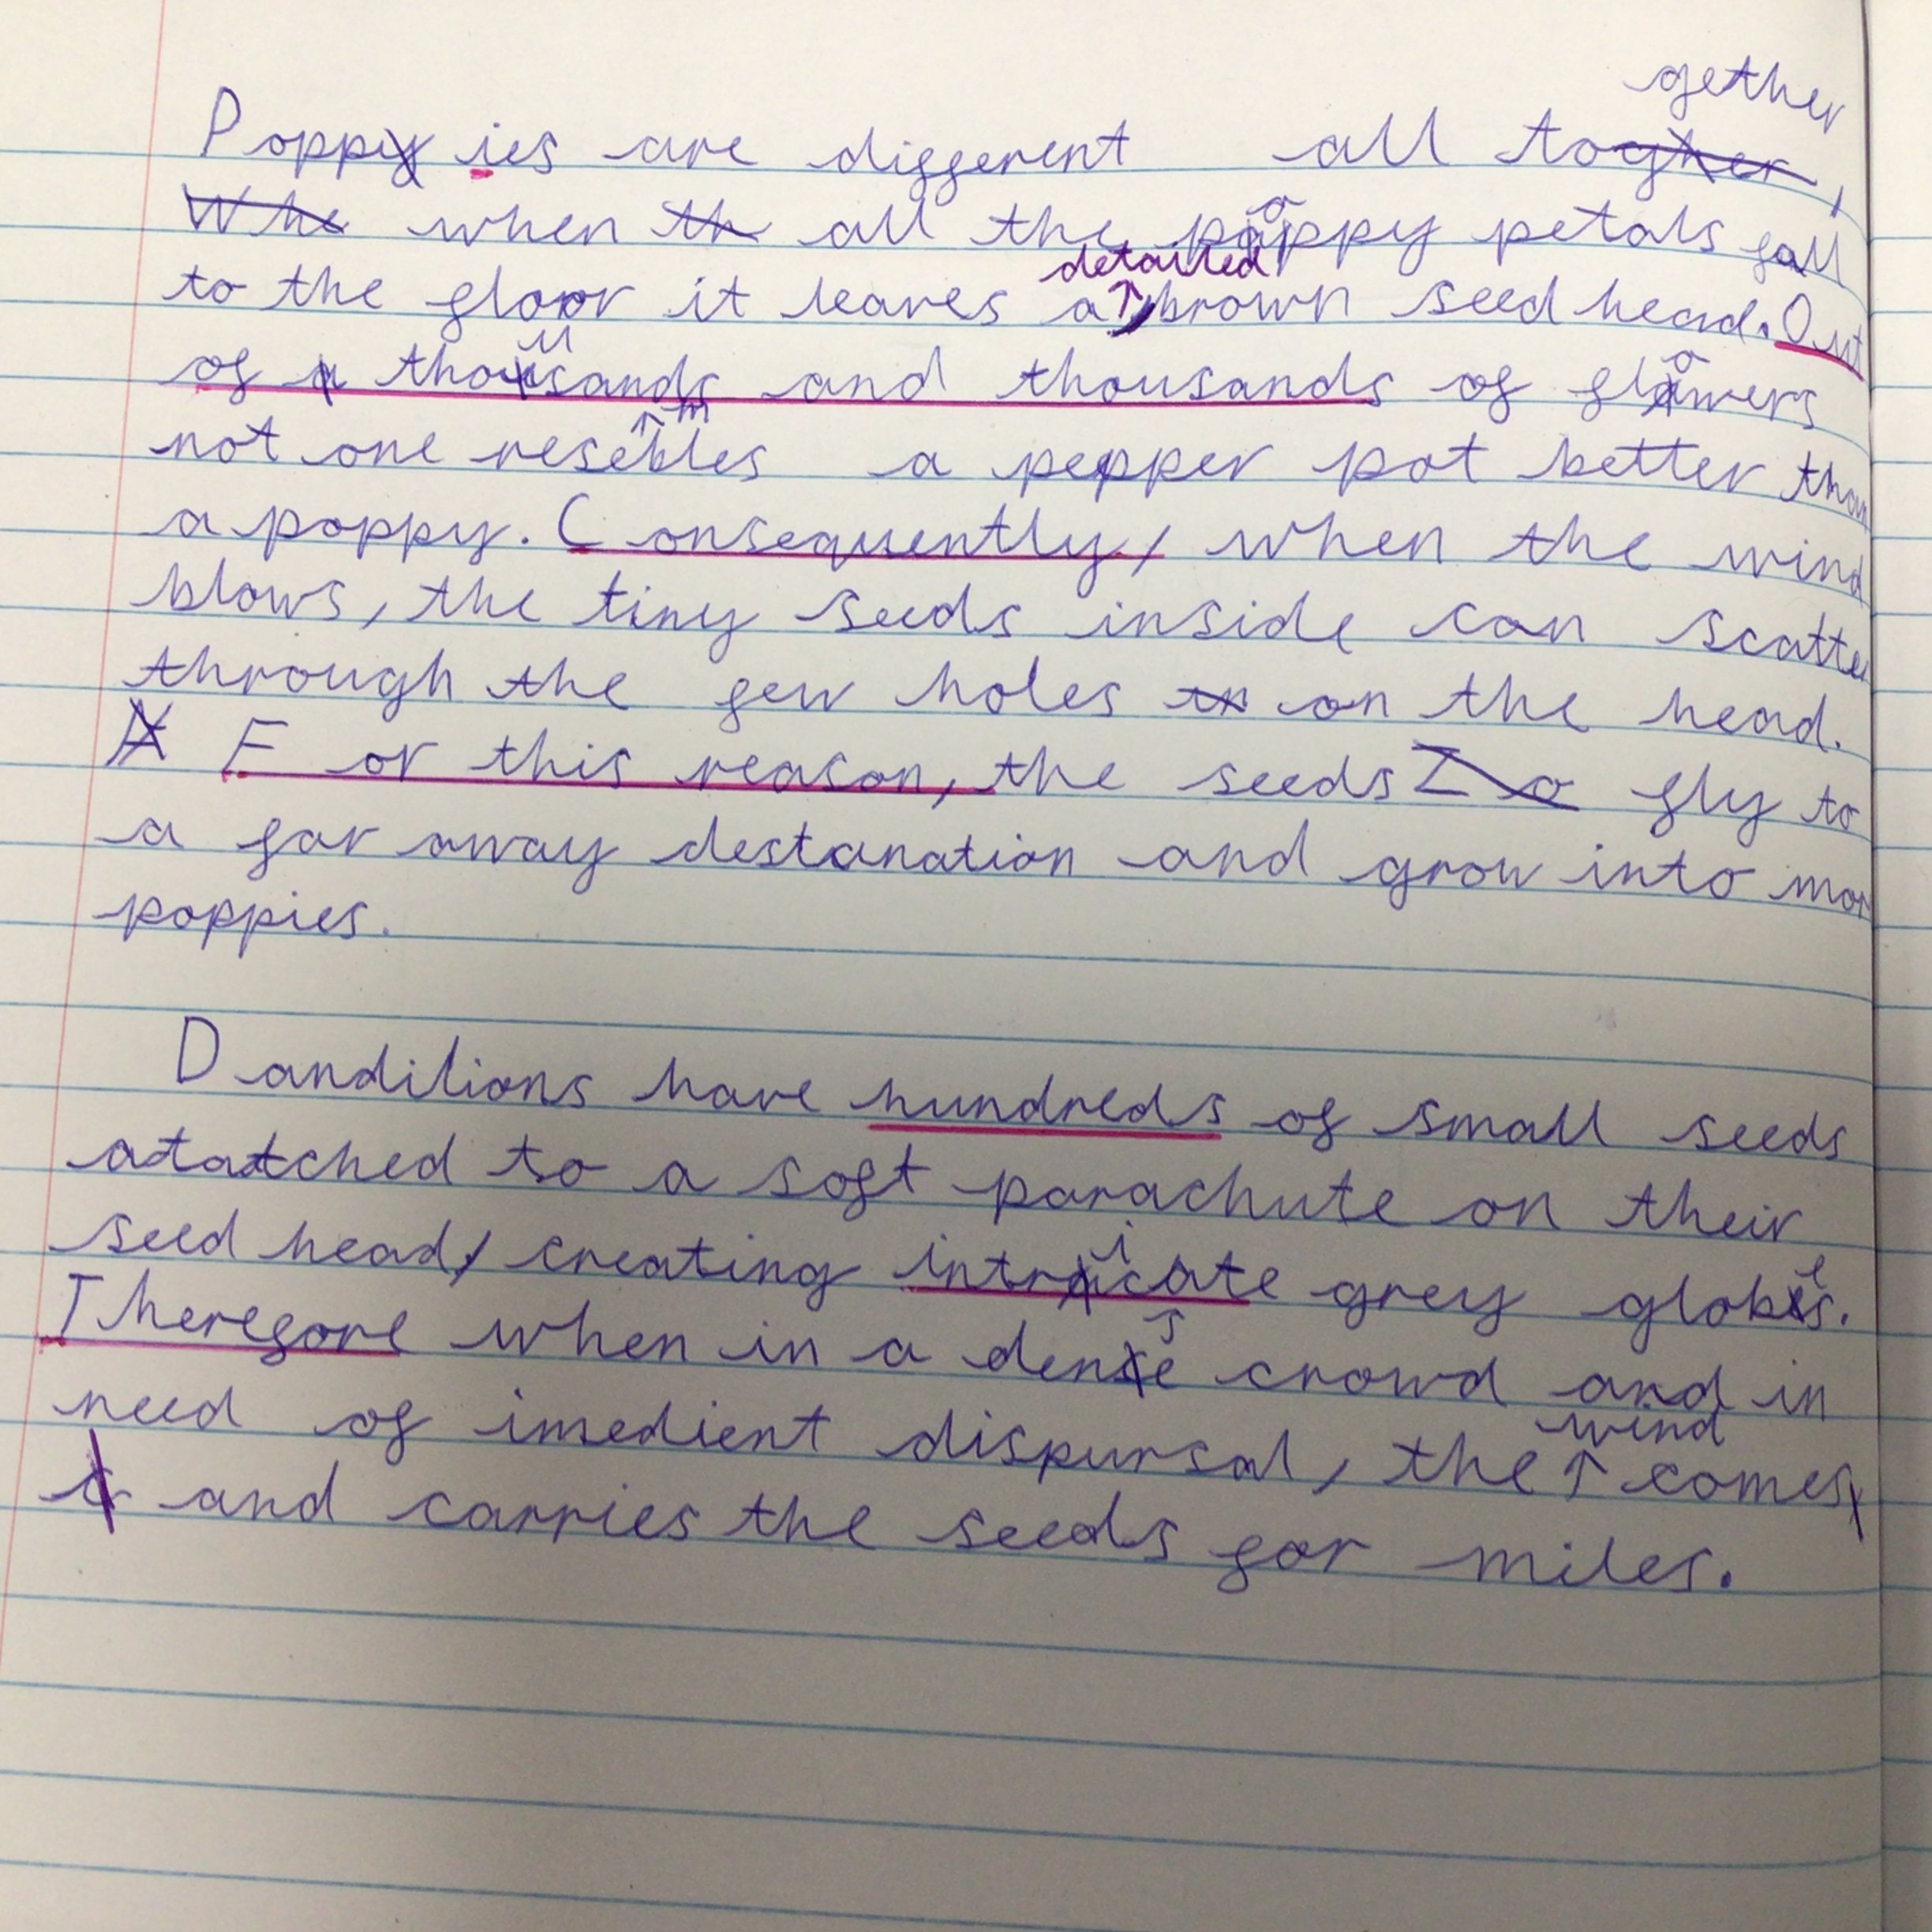 Poppies are different all together,
when all the poppy petals fall
to the floor it leaves a detailed, brown seed head. Out
of thousands and thousands of flowers
not one resembles a pepper pot better than
a poppy. Consequently, when the wind
blows, the tiny seeds inside can scatter
through the few holes on the head.
For this reason, the seeds fly to
a far away destanation and grow into mor
poppies.
Danditions have hundreds of small seeds
atatched to a soft parachute on their
seed head, creating intricate grey globes.
Therefore when in a dense crowd and in
need of imedient dispursal, the wind comes,
and carries the seeds for miles.